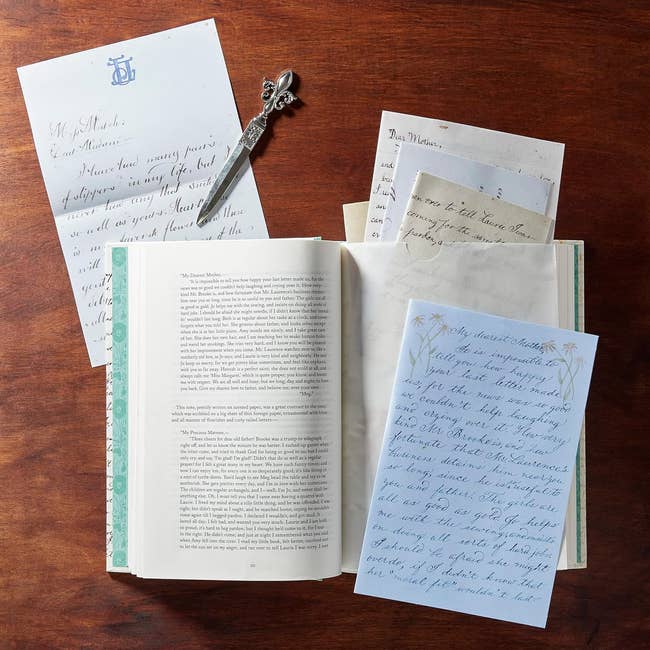 Miss March,
Dear Madam—
I have had many pairs
of slippers in my life, but I
never had any that suited me
so well as yours.
Dear Mother,
an ever to tell Laurie I was
coming for the
"My Dearest Mother,—
"It is impossible to tell you how happy your last letter made us, for the
news was so good we couldn't help laughing and crying over it. How very
kind Mr. Brooke is, and how fortunate that Mr. Laurence's business detains
him near you so long, since he is so useful to you and father. The girls are all
as good as gold. Jo helps me with the sewing, and insists on doing all sorts of
hard jobs. I should be afraid she might overdo, if I didn't know that her 'moral
fit' wouldn't last long. Beth is as regular about her tasks as a clock, and never
forgets what you told her. She grieves about father, and looks sober except
when she is at her little piano. Amy minds me nicely, and I take great care
of her. She does her own hair, and I am teaching her to make button-holes
and mend her stockings. She tries very hard, and I know you will be pleased
with her improvement when you come. Mr. Laurence watches over us like a
motherly old hen, as Jo says; and Laurie is very kind and neighborly. He and
Jo keep us merry, for we get pretty blue sometimes, and feel like orphans,
with you so far away. Hannah is a perfect saint; she does not scold at all, and
always calls me 'Miss Margaret,' which is quite proper, you know, and treats
me with respect. We are all well and busy; but we long, day and night, to have
you back. Give my dearest love to father, and believe me, ever your own
"Meg."
This note, prettily written on scented paper, was a great contrast to the next,
which was scribbled on a big sheet of thin foreign paper, ornamented with blots
and all manner of flourishes and curly-tailed letters:—
"My Precious Marmee,—
"Three cheers for dear old father! Brooke was a trump to telegraph
right off, and let us know the minute he was better. I rushed up garret when
the letter came, and tried to thank God for being so good to us; but I could
only cry, and say, 'I'm glad! I'm glad!' Didn't that do as well as a regular
prayer? for I felt a great many in my heart. We have such funny times; and
now I can enjoy 'em, for every one is so desperately good, it's like living in
a nest of turtle-doves. You'd laugh to see Meg head the table and try to be
motherish. She gets prettier every day, and I'm in love with her sometimes.
The children are regular archangels, and I—well, I'm Jo, and never shall be
anything else. Oh, I must tell you that I came near having a quarrel with
Laurie. I freed my mind about a silly little thing, and he was offended. I was
right, but didn't speak as I ought, and he marched home, saying he wouldn't
come again till I begged pardon. I declared I wouldn't, and got mad. It
lasted all day. I felt bad, and wanted you very much. Laurie and I are both
so proud, it's hard to beg pardon; but I thought he'd come to it, for I was
in the right. He didn't come; and just at night I remembered what you said
when Amy fell into the river. I read my little book, felt better, resolved not
to let the sun set on my anger, and ran over to tell Laurie I was sorry. I met
My dearest Mother,
It is impossible to
tell you how happy
your last letter made
us, for the news was so good
we couldn't help laughing
and crying over it. How very
kind Mr. Brooke is, and how
fortunate that Mr. Laurence's
business detains him near you
so long, since he is so useful to
you and father. The girls are
all as good as gold. Jo helps
me with the sewing, and insists
on doing all sorts of hard jobs.
I should be afraid she might
overdo, if I didn't know that
her "moral fit" wouldn't last